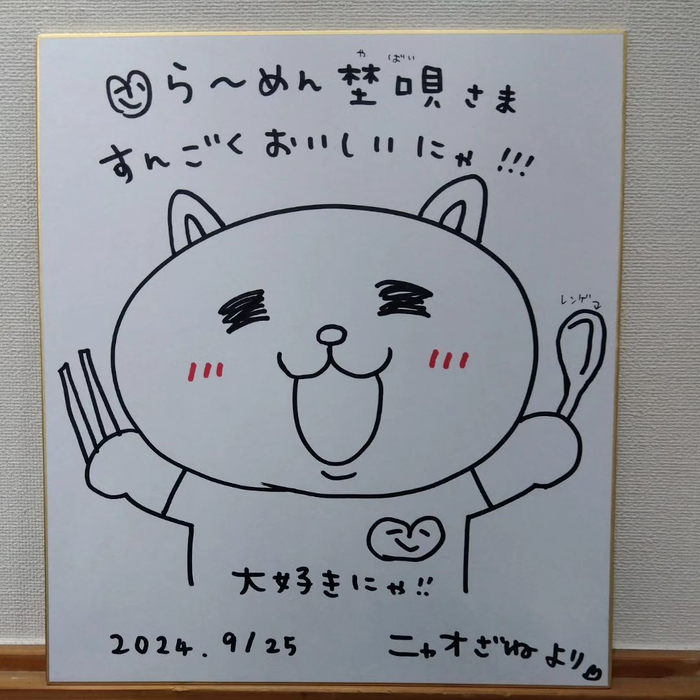 や ばい
ら〜めん 埜唄 さま
すんごくおいしいにゃ!!!
レンゲ
大好きにゃ!!
2024. 9/25
ニャオざねより